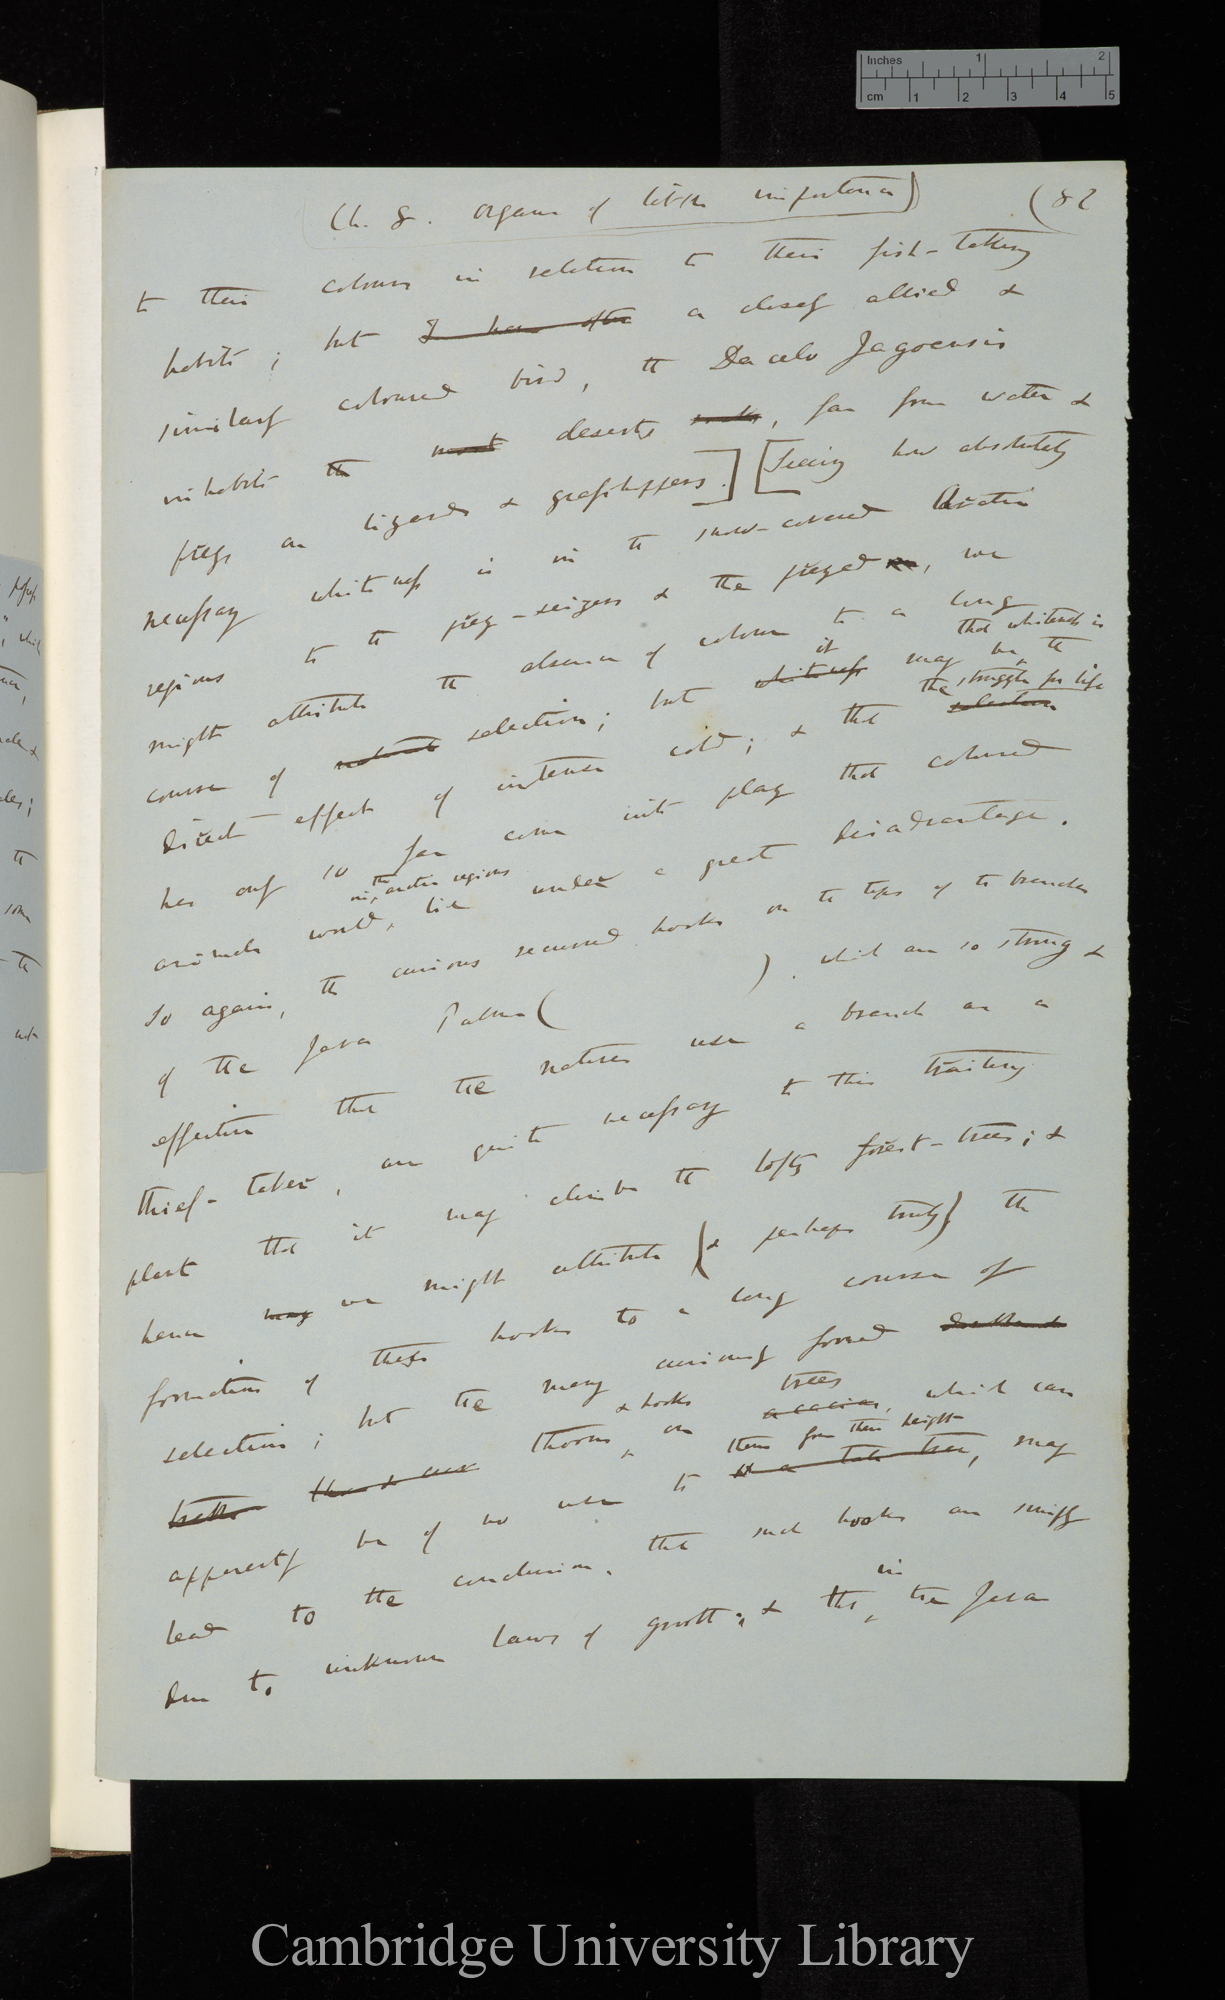 Inches 1 2
cm 1 2 3 4 5
Ch. 8. Organs of little importance) (82
to their colours in relation to their fish-taking
habits; but I have often a closely allied &
similarly coloured bird, the Dacelo Jagoensis
inhabits the most deserts, far from water &
preys on lizards & grasshoppers.] [Seeing how absolutely
necessary whiteness is in the snow-covered Arctic
regions to the prey-seizers & the preyed on, we
might attribute the absence of colour to a long
course of natural selection; but whiteness it may be, that whiteness is the
direct effect of intense cold; & that selection the struggle for life
has only so far come into play that coloured
animals would, in the arctic regions lie under a great disadvantage.
So again, the curious recurved hooks on the tips of the branches
of the Java Palm ( ). which are so strong &
effective that the natives use a branch as a
thief-taker, are quite necessary to this trailing
plant that it may climb the lofty forest-trees; &
hence may we might attribute (& perhaps truly) the
formation of these hooks to a long course of
selection; but the many curiously formed
thorns & hooks, on acacias, trees which can
apparently be of no use to them from their height to a tall tree, may
lead to the conclusion. that such hooks are simply
due to unknown laws of growth; & that in the Java
Cambridge University Library